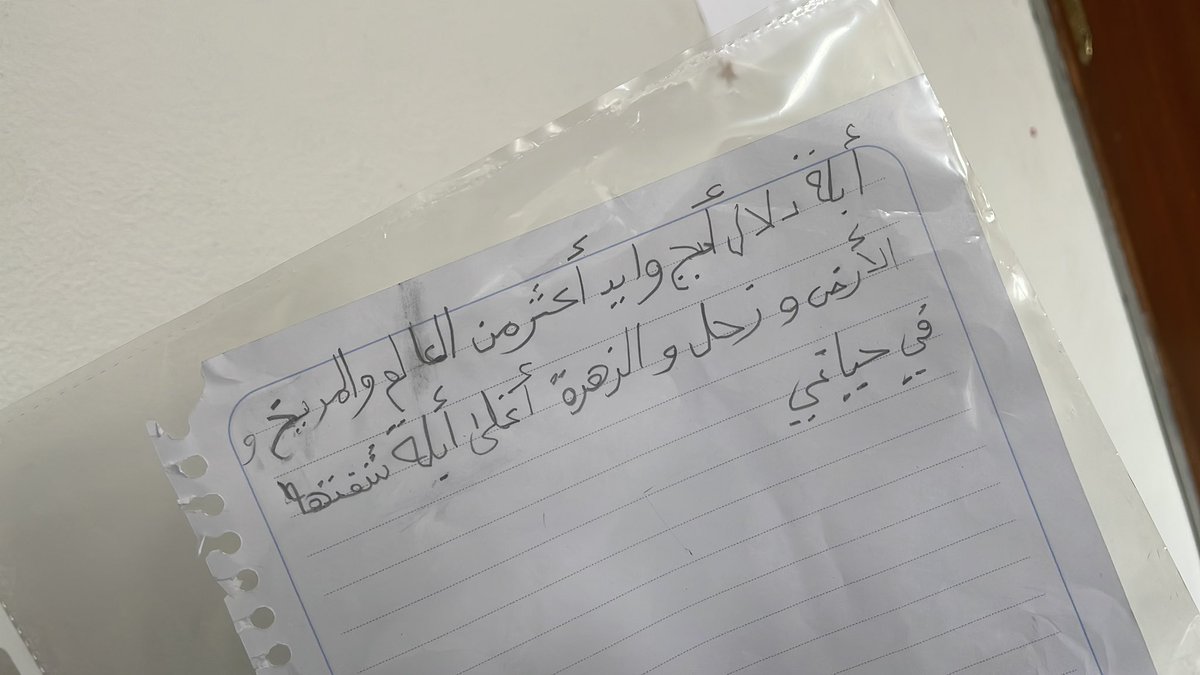 أبلة دلال أحبج وايد أكثر من العالم والمريخ و
الأرض و زحل و الزهرة أغلى أبلة شفتها
في حياتي